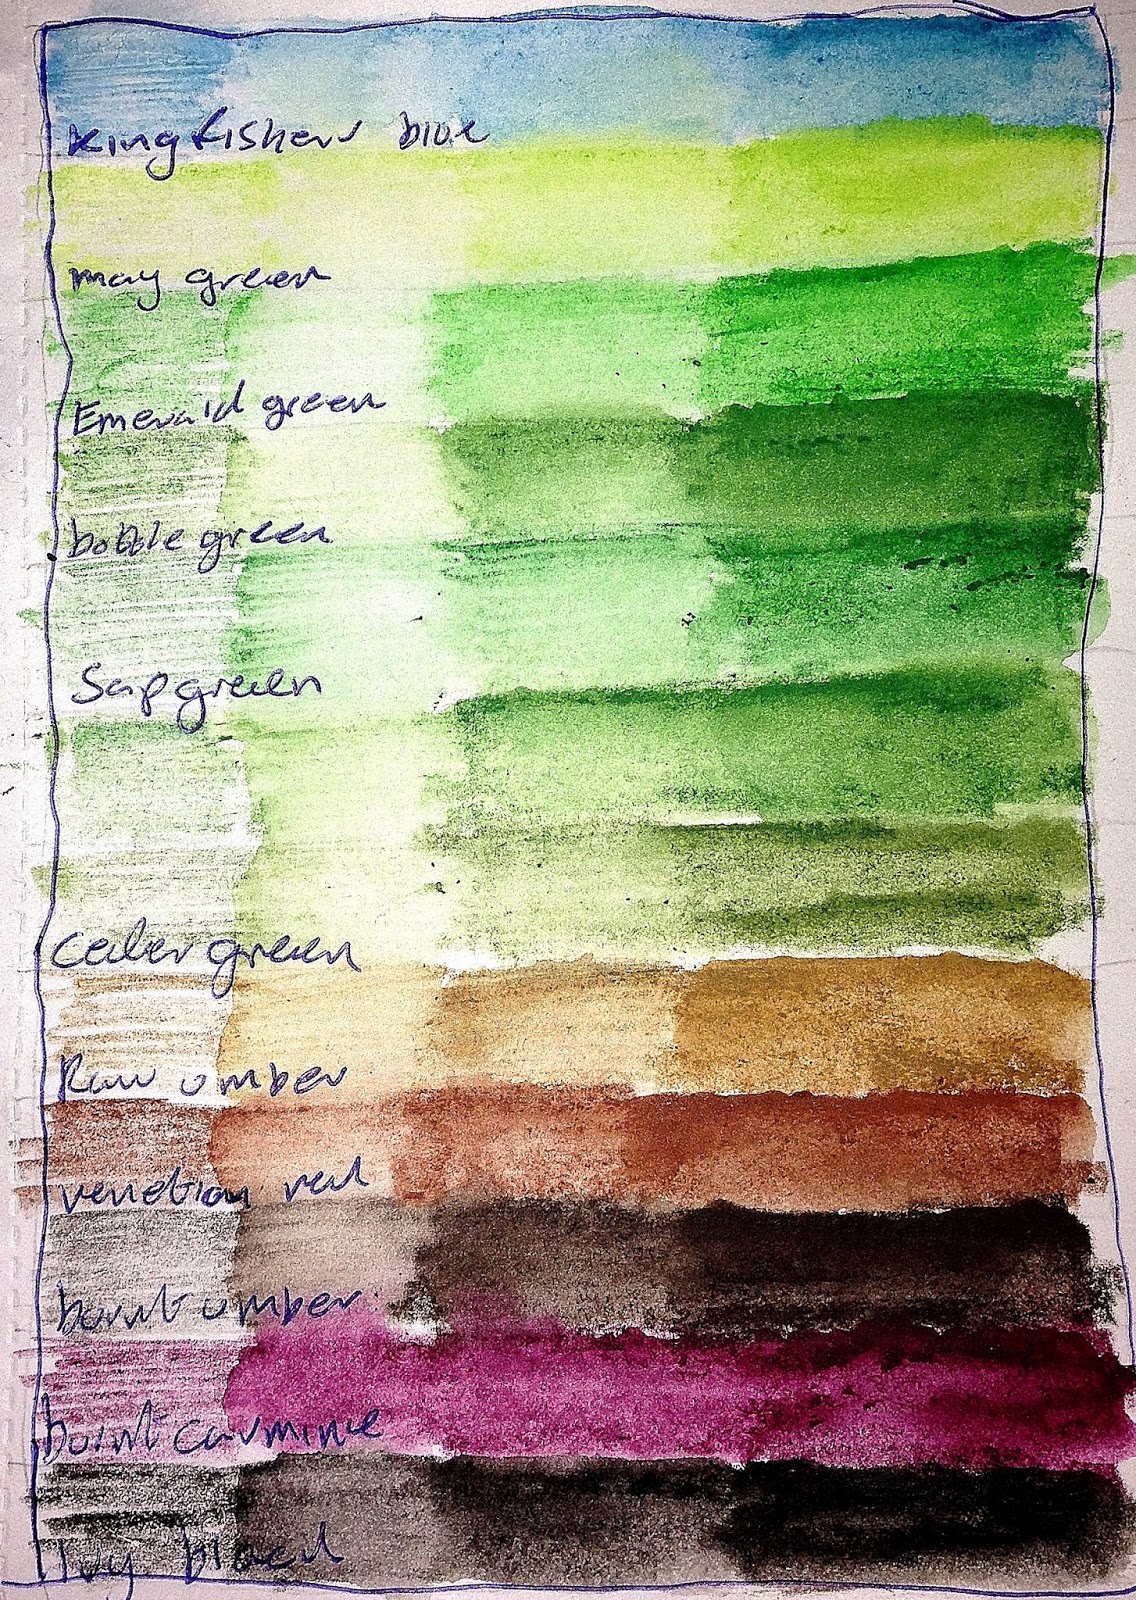 Kingfisher blue
may green
Emerald green
bottle green
Sap green
Ceder green
Raw umber
venetian red
burnt umber
burnt carmine
Ivy black